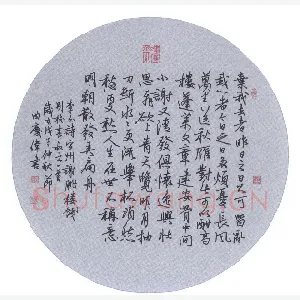 棄我去者昨日之日不可留亂
我心者今日之日多煩憂長風
萬里送秋雁對此可以酣高
樓蓬萊文章建安骨中間
小謝又清發俱懷逸興壯
思飛欲上青天覽明月抽
刀斷水水更流舉杯消愁
愁更愁人生在世不稱意
明朝散發弄扁舟
李白詩宣州謝朓樓餞
別校書叔雲
歲次戊子仲秋節